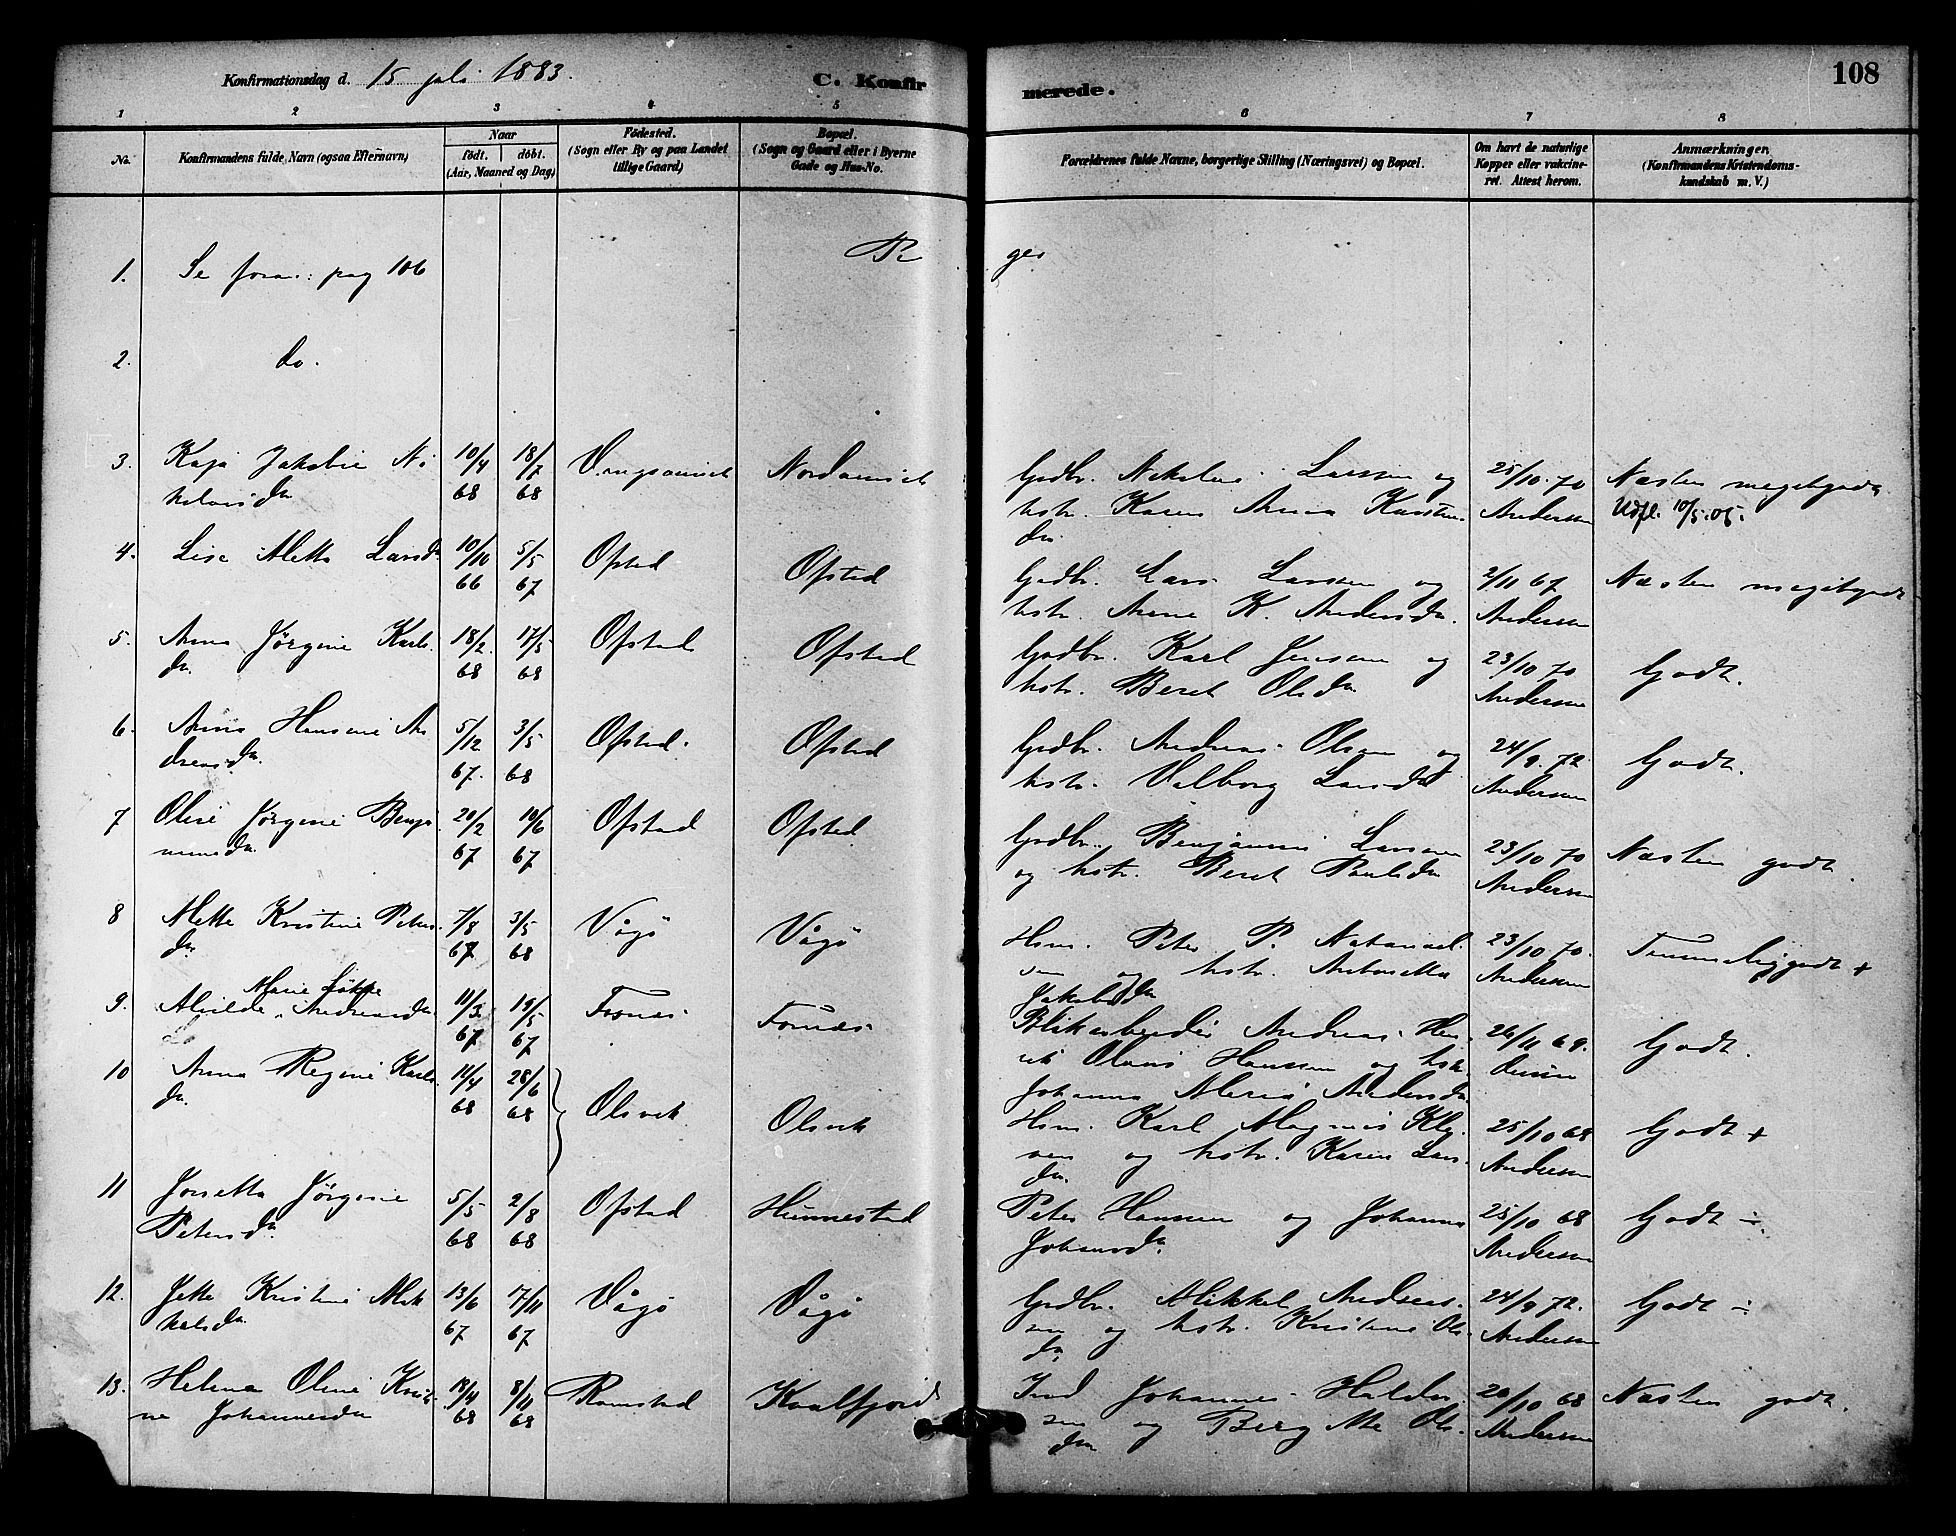 Konfirmationsdag d. 15 juli 1883.
C. Konfirmerede.
108
1 2 3 4 5 6 7 8
No. Konfirmandens fulde Navn (ogsaa Efternavn) Naar født. døbt. (Aar, Maaned og Dag) Fødested. (Sogn eller By og paa Landet tillige Gaard) Bopæl. (Sogn og Gaard eller i Byerne Gade og Hus-No. Forældrenes fulde Navne, borgerlige Stilling (Næringsvei) og Bopæl. Om havt de naturlige Kopper eller vaccineret. Attest herom. Anmærkninger. (Konfirmandens Kristendomskundskab m. V.)
Piger
1. Se foran: pag 106
2. do.
3. Kaja Jakobie Nikolaisda 10/4 68 18/7 68 Nordamset Grdbr. Nikolai Larssen og hstr. Karen Anna Karstensda 25/10 70 Anderssen Næsten megetgodt. Udfl. 10/5.05.
4. Lise Metta Larsda 10/10 66 5/5 67 Ofsted Ofsted Grdbr. Lars Larssen og hstr. Anne K. Andersda. 2/11 67 Anderssen Næsten megetgodt
5. Anna Jørgine Karlsda. 18/2 68 17/5 68 Ofstad Ofsted Grdbr. Karl Jenssen og hstr. Beret Olsda 23/10 70 Anderssen Godt.
6. Anna Hansine Andreasda. 5/12 67. 3/5 68 Ofsted. Ofsted Grdbr. Andreas Olsen og hstr. Valborg Larsda 24/9 72 Anderssen Godt.
7 Oline Jørgine Benjaminsda. 20/2 67 10/6 67 Ofstad Ofsted Grdbr. Benjamin Larssen og hstr. Beret Paulsda 23/10 70 Anderssen Næsten godt.
8 Mette Kristine Petersda. 7/8 67. 3/5 68 Vågø Vågø Hsm. Peter P. Natanaelsen og hstr. Jakobsda 23/10 70. Anderssen Temmeliggodt +
9. Alvilde Marie Løkke Andreasda 11/3 67 19/5 67 Fornæs Fornæs Blikarbeider Andreas Olaus Hanssen og hstr. Johanna Maria Andersda 26/11 69. Godt.
10 Anna Regine Karlsda. 14/4 68 28/6 68 Olsvik Olsvik Hsm. Karl Magnus og hstr. Karen Larsda. 25/10 68 Anderssen Godt +
11 Josetta Jørgine Petersda. 5/5 68 2/8 68 Ofstad Hunnestad Peter Hansen og Johanna Johansda. 25/10 68 Anderssen Godt ÷.
12. Jette Kristine Mikkelsda 13/6 67 17/11 67 Vågø Vågø Grdbr. Mikkel Andreassen og hstr. Kristine Olsda 24/9 72. Anderssen Godt ÷
13. Helena Oline Kristine Johannesda 19/4 68 8/11 68 Ramstad Kaalfjord Ind Johannes Haldorsen og Bergitte Olsda 20/10 68 Anderssen Næsten godt.